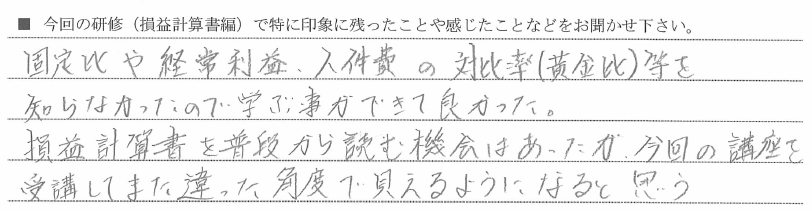 ■ 今回の研修（損益計算書編）で特に印象に残ったことや感じたことなどをお聞かせ下さい。
固定比や経常利益、人件費の対比率(黄金比)等を
知らなかったので学ぶ事ができて良かった。
損益計算書を普段から読む機会はあったが、今回の講座を
受講してまた違った角度で見えるようになると思う